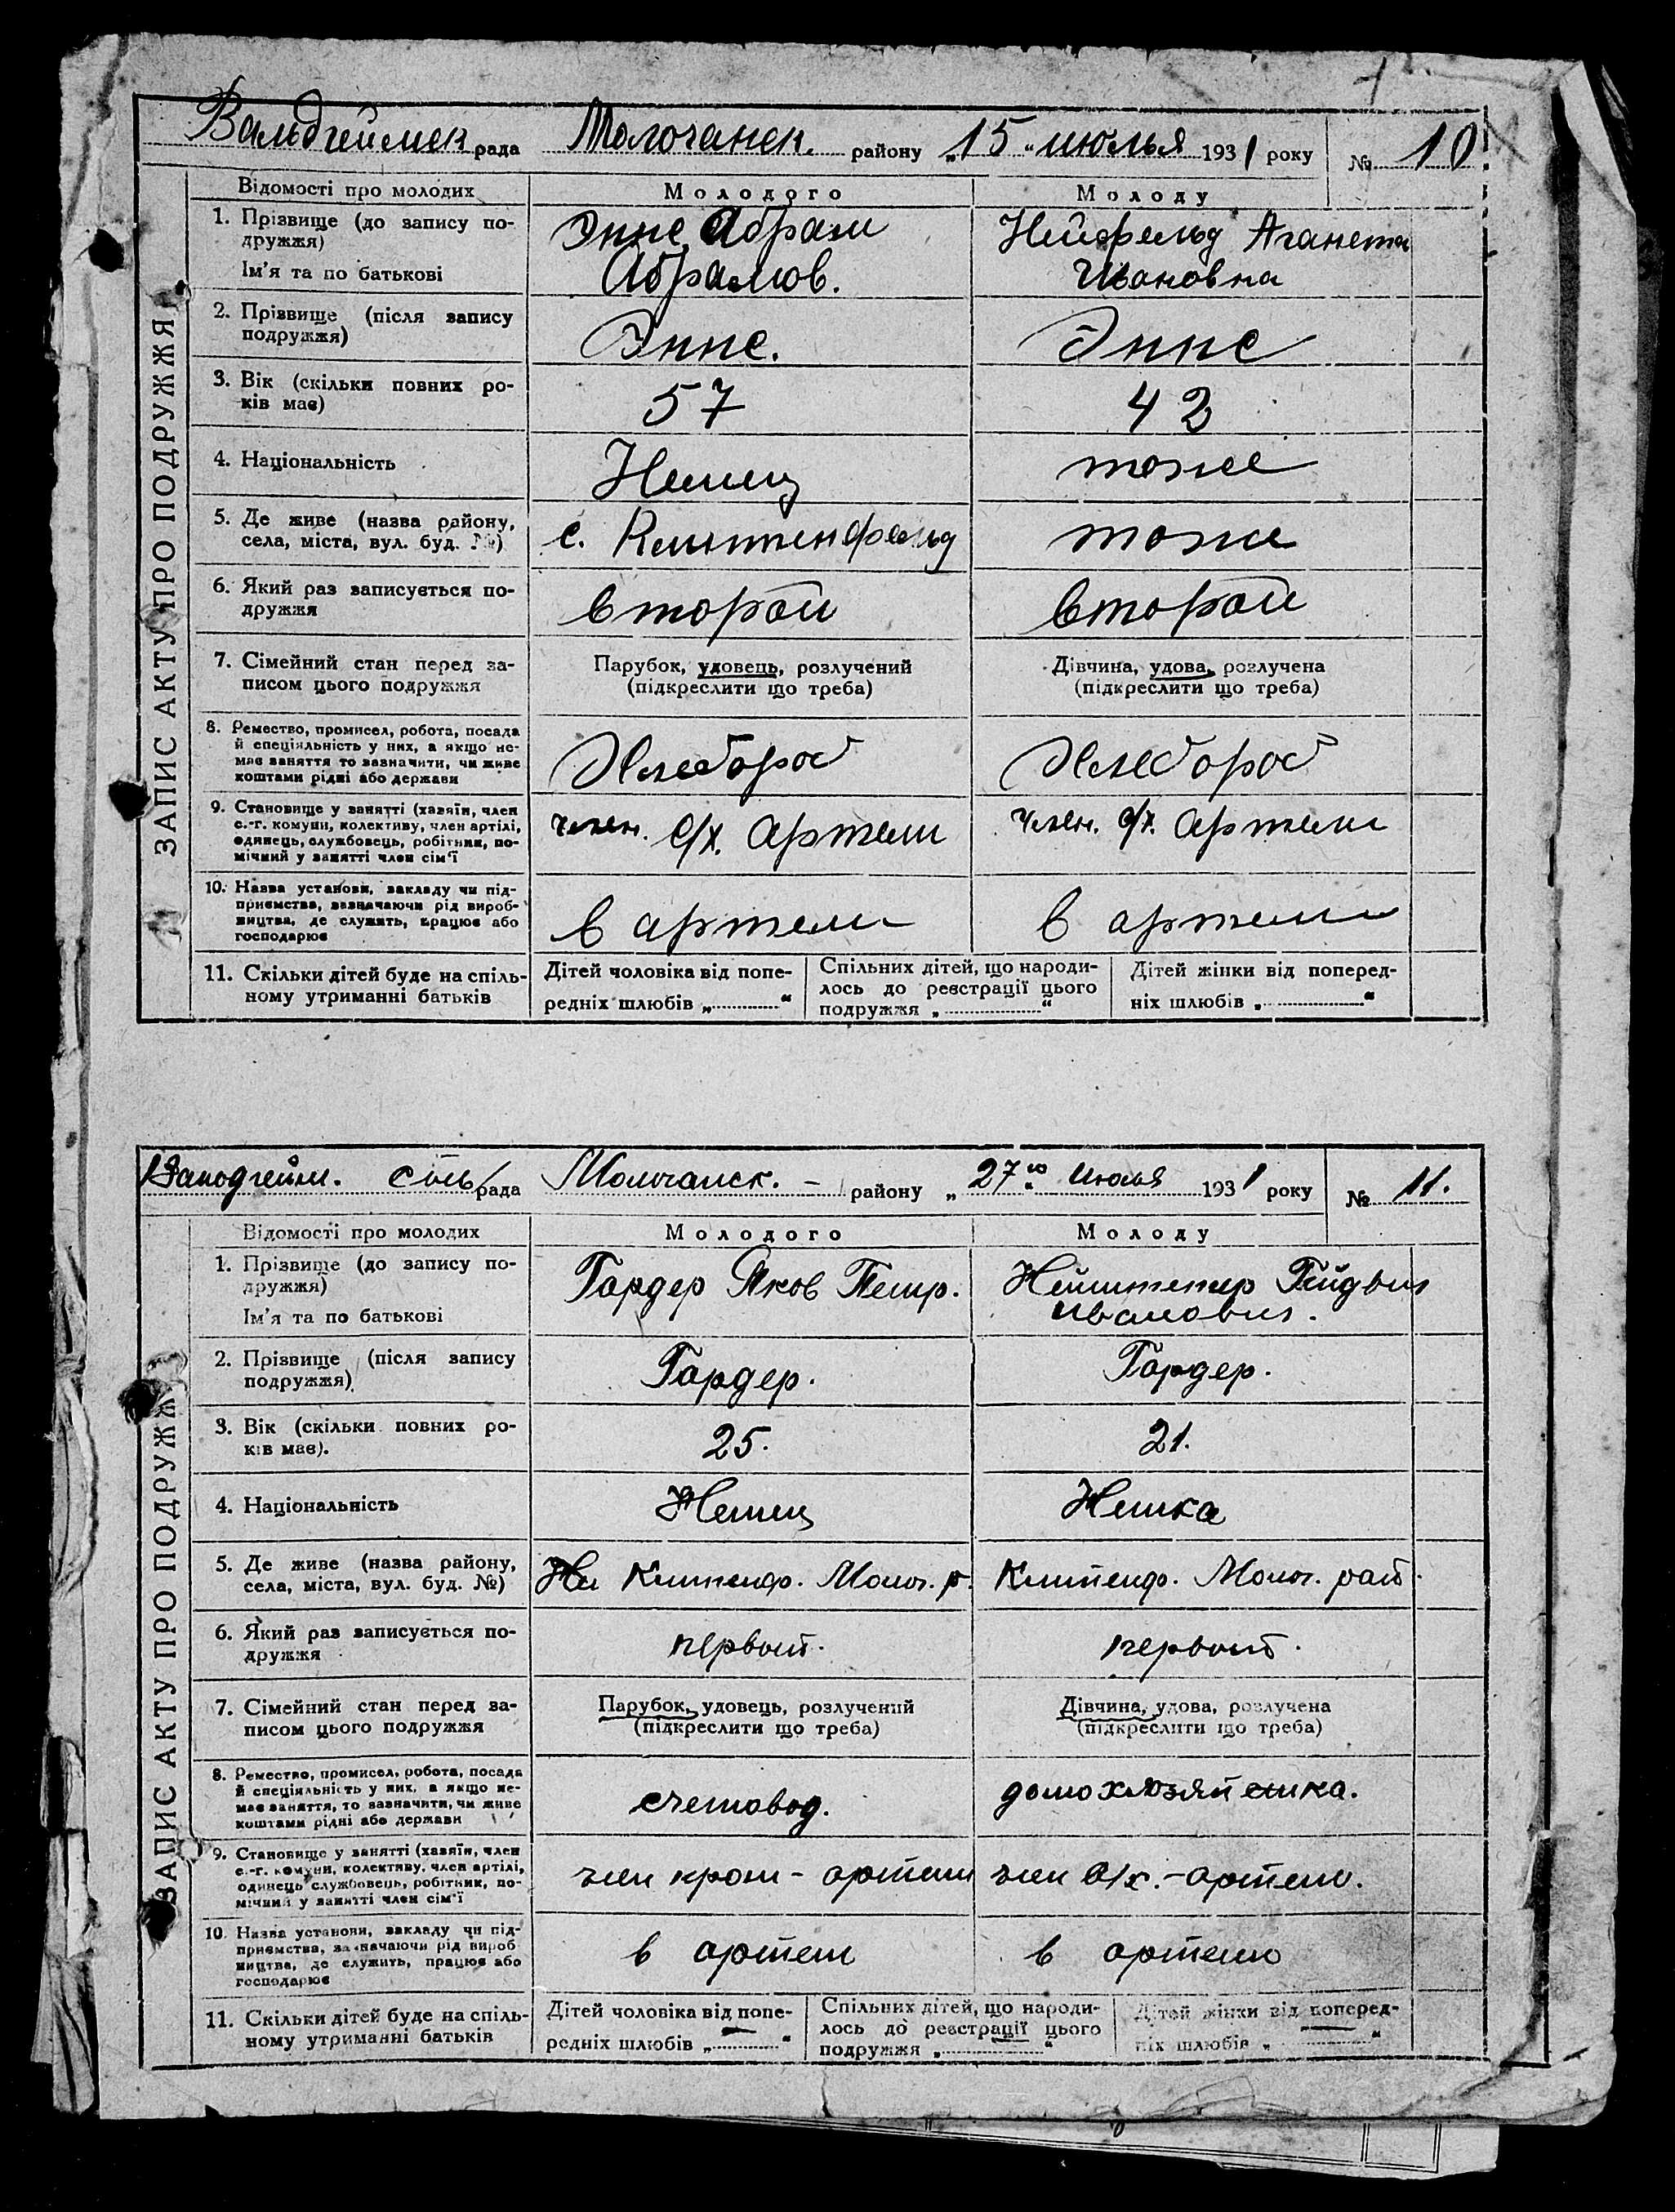 Вальдгеймск рада Молочанск. району „15“ июлья 1931 року № 10
Відомості про молодих Молодого Молоду
1. Прізвище (до запису подружжя)
Ім'я та по батькові
Эннс Абрам
Абрамов.
Нейфельд Аганета
Ивановна
2. Прізвище (після запису
подружжя)
Эннс.
Эннс
3. Вік (скільки повних ро-
ків має)
57
42
4. Національність
Немец
тоже
5. Де живе (назва району,
села, міста, вул. буд. №)
с. Клиппенфельд
тоже
6. Який раз записується по-
дружжя
второй
второй
7. Сімейний стан перед за-
писом цього подружжя
Парубок, удовець, розлучений
(підкреслити що треба)
Дівчина, удова, розлучена
(підкреслити що треба)
8. Ремество, промисел, робота, посада
й спеціяльність у них, а якщо не-
має заняття то зазначити, чи живе
коштами рідні або держави
Хлебороб
Хлебороб
9. Становище у занятті (хазяїн, член
с.-г. комуни, колективу, член артілі,
одинець, службовець, робітник, по-
мічний у занятті член сім'ї
член. с/х. артели
член. с/х. артели
10. Назва установи, закладу чи під-
приємства, зазначаючи рід вироб-
ництва, де служить, працює або
господарює
в артели
в артели
11. Скільки дітей буде на спіль-
ному утриманні батьків
Дітей чоловіка від попе-
редніх шлюбів „ “
Спільних дітей, що народи-
лось до реєстрації цього
подружжя „ “
Дітей жінки від поперед-
ніх шлюбів „ “
ЗАПИС АКТУ ПРО ПОДРУЖЖЯ
Вальдгейм. сель рада Молочанск. - району „27го июля 1931 року № 11.
Відомості про молодих Молодого Молоду
1. Прізвище (до запису по-
дружжя)
Ім'я та по батькові
Гардер Яков Петр.
Ивановна.
2. Прізвище (після запису
подружжя)
Гардер.
Гардер.
3. Вік (скільки повних ро-
ків має).
25.
21.
4. Національність
Немец
Немка
5. Де живе (назва району,
села, міста, вул. буд. №)
Клипенф. Молоч. р.
Клипенф. Молоч. рай.
6. Який раз записується по-
дружжя
первый.
первый.
7. Сімейний стан перед за-
писом цього подружжя
Парубок, удовець, розлучений
(підкреслити що треба)
Дівчина, удова, розлучена
(підкреслити що треба)
8. Ремество, промисел, робота, посада
й спеціяльність у них, а якщо не-
має заняття, то зазначити, чи живе
коштами рідні або держави
счетовод.
домохозяйка.
9. Становище у занятті (хазяїн, член
с.-г. комуни, колективу, член артілі,
одинець службовець, робітник, по-
мічний у занятті член сім'ї
член пром - артели
член с/х. - артели.
10. Назва установи, закладу чи під-
приємства, зазначаючи рід вироб
ництва, де служить, працює або
господарює
в артели
в артели
11. Скільки дітей буде на спіль-
ному утриманні батьків
Дітей чоловіка від попе-
редніх шлюбів „ “
Спільних дітей, що народи-
лось до реєстрації цього
подружжя „ “
Дітей жінки від поперед-
ніх шлюбів „ “
ЗАПИС АКТУ ПРО ПОДРУЖЖЯ